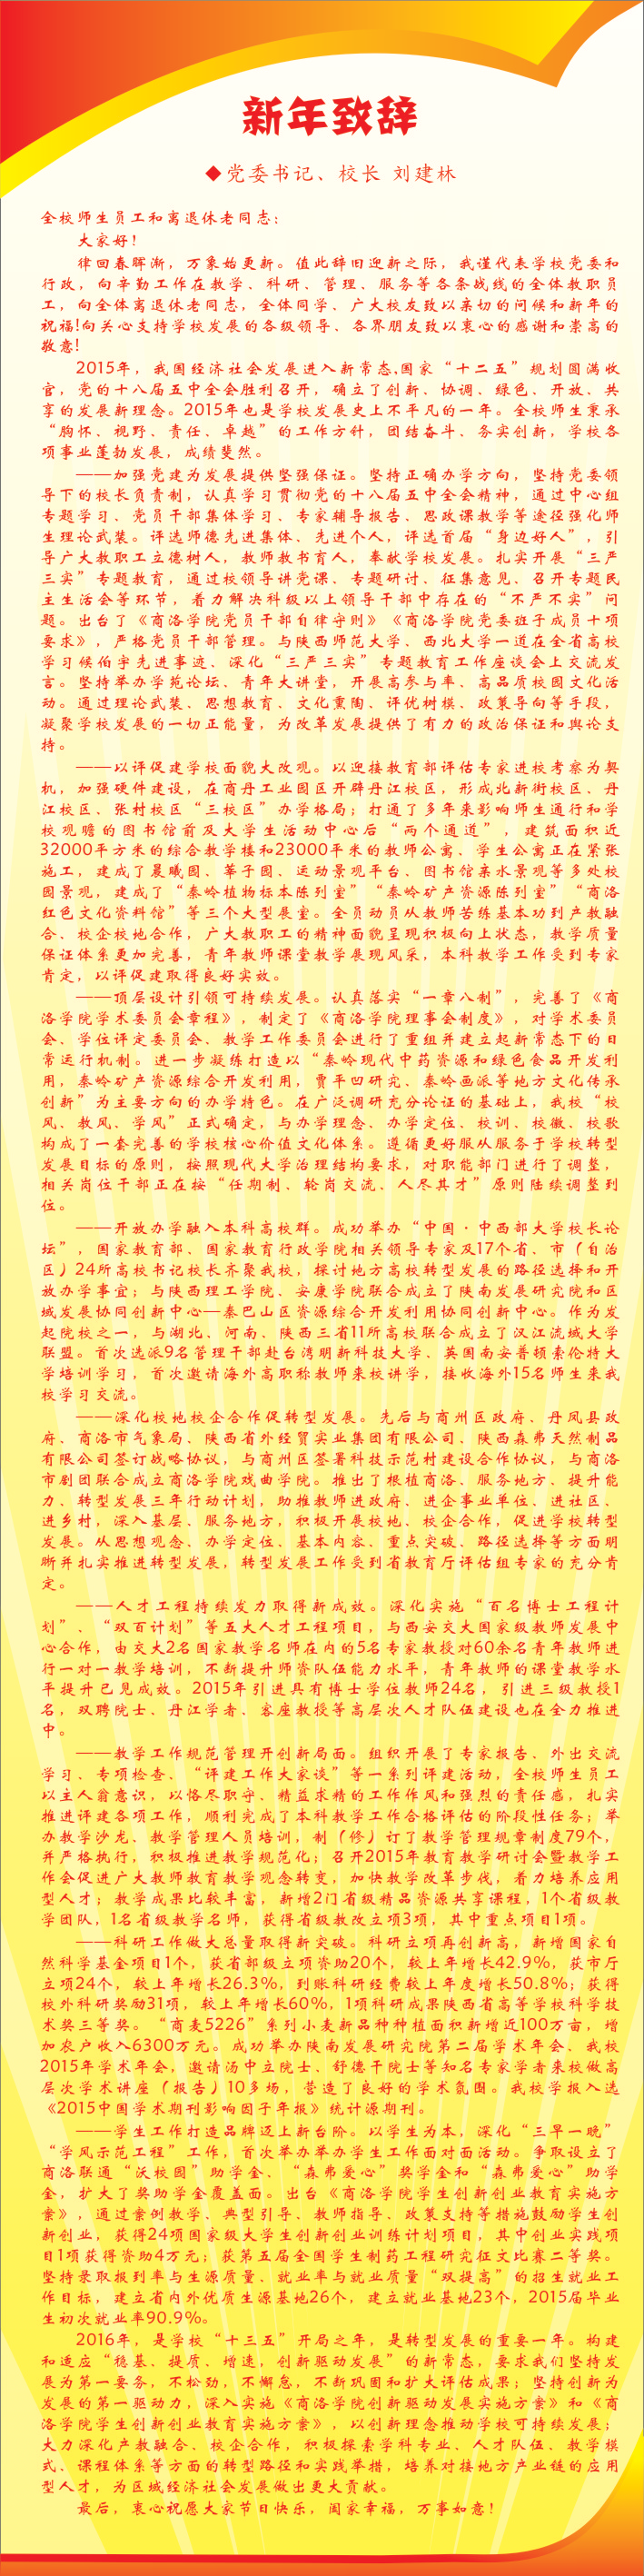 新年致辞
◆党委书记、校长 刘建林
全校师生员工和离退休老同志：
大家好！
律回春晖渐，万象始更新。值此辞旧迎新之际，我谨代表学校党委和
行政，向辛勤工作在教学、科研、管理、服务等各条战线的全体教职员
工，向全体离退休老同志，全体同学、广大校友致以亲切的问候和新年的
祝福!向关心支持学校发展的各级领导、各界朋友致以衷心的感谢和崇高的
敬意!
2015年，我国经济社会发展进入新常态,国家“十二五”规划圆满收
官，党的十八届五中全会胜利召开，确立了创新、协调、绿色、开放、共
享的发展新理念。2015年也是学校发展史上不平凡的一年。全校师生秉承
“胸怀、视野、责任、卓越”的工作方针，团结奋斗、务实创新，学校各
项事业蓬勃发展，成绩斐然。
——加强党建为发展提供坚强保证。坚持正确办学方向，坚持党委领
导下的校长负责制，认真学习贯彻党的十八届五中全会精神，通过中心组
专题学习、党员干部集体学习、专家辅导报告、思政课教学等途径强化师
生理论武装。评选师德先进集体、先进个人，评选首届“身边好人”，引
导广大教职工立德树人，教师教书育人，奉献学校发展。扎实开展“三严
三实”专题教育，通过校领导讲党课、专题研讨、征集意见、召开专题民
主生活会等环节，着力解决科级以上领导干部中存在的“不严不实”问
题。出台了《商洛学院党员干部自律守则》《商洛学院党委班子成员十项
要求》，严格党员干部管理。与陕西师范大学、西北大学一道在全省高校
学习候伯宇先进事迹、深化“三严三实”专题教育工作座谈会上交流发
言。坚持举办学苑论坛、青年大讲堂，开展高参与率、高品质校园文化活
动。通过理论武装、思想教育、文化熏陶、评优树模、政策导向等手段，
凝聚学校发展的一切正能量，为改革发展提供了有力的政治保证和舆论支
持。
——以评促建学校面貌大改观。以迎接教育部评估专家进校考察为契
机，加强硬件建设，在商丹工业园区开辟丹江校区，形成北新街校区、丹
江校区、张村校区“三校区”办学格局；打通了多年来影响师生通行和学
校观瞻的图书馆前及大学生活动中心后“两个通道”，建筑面积近
32000平方米的综合教学楼和23000平米的教师公寓、学生公寓正在紧张
施工，建成了晨曦园、莘子园、运动景观平台、图书馆亲水景观等多处校
园景观，建成了“秦岭植物标本陈列室”“秦岭矿产资源陈列室”“商洛
红色文化资料馆”等三个大型展室。全员动员从教师苦练基本功到产教融
合、校企校地合作，广大教职工的精神面貌呈现积极向上状态，教学质量
保证体系更加完善，青年教师课堂教学展现风采，本科教学工作受到专家
肯定，以评促建取得良好实效。
——顶层设计引领可持续发展。认真落实“一章八制”，完善了《商
洛学院学术委员会章程》，制定了《商洛学院理事会制度》，对学术委员
会、学位评定委员会、教学工作委员会进行了重组并建立起新常态下的日
常运行机制。进一步凝练打造以“秦岭现代中药资源和绿色食品开发利
用，秦岭矿产资源综合开发利用，贾平凹研究、秦岭画派等地方文化传承
创新”为主要方向的办学特色。在广泛调研充分论证的基础上，我校“校
风、教风、学风”正式确定，与办学理念、办学定位、校训、校徽、校歌
构成了一套完善的学校核心价值文化体系。遵循更好服从服务于学校转型
发展目标的原则，按照现代大学治理结构要求，对职能部门进行了调整，
相关岗位干部正在按“任期制、轮岗交流、人尽其才”原则陆续调整到
位。
——开放办学融入本科高校群。成功举办“中国·中西部大学校长论
坛”，国家教育部、国家教育行政学院相关领导专家及17个省、市（自治
区）24所高校书记校长齐聚我校，探讨地方高校转型发展的路径选择和开
放办学事宜；与陕西理工学院、安康学院联合成立了陕南发展研究院和区
域发展协同创新中心—秦巴山区资源综合开发利用协同创新中心。作为发
起院校之一，与湖北、河南、陕西三省11所高校联合成立了汉江流域大学
联盟。首次选派9名管理干部赴台湾明新科技大学、英国南安普顿索伦特大
学培训学习，首次邀请海外高职称教师来校讲学，接收海外15名师生来我
校学习交流。
——深化校地校企合作促转型发展。先后与商州区政府、丹凤县政
府、商洛市气象局、陕西省外经贸实业集团有限公司、陕西森弗天然制品
有限公司签订战略协议，与商州区签署科技示范村建设合作协议，与商洛
市剧团联合成立商洛学院戏曲学院。推出了根植商洛、服务地方、提升能
力、转型发展三年行动计划，助推教师进政府、进企事业单位、进社区、
进乡村，深入基层、服务地方，积极开展校地、校企合作，促进学校转型
发展。从思想观念、办学定位、基本内容、重点突破、路径选择等方面明
晰并扎实推进转型发展，转型发展工作受到省教育厅评估组专家的充分肯
定。
——人才工程持续发力取得新成效。深化实施“百名博士工程计
划”、“双百计划”等五大人才工程项目，与西安交大国家级教师发展中
心合作，由交大2名国家教学名师在内的5名专家教授对60余名青年教师进
行一对一教学培训，不断提升师资队伍能力水平，青年教师的课堂教学水
平提升已见成效。2015年引进具有博士学位教师24名，引进三级教授1
名，双聘院士、丹江学者、客座教授等高层次人才队伍建设也在全力推进
中。
——教学工作规范管理开创新局面。组织开展了专家报告、外出交流
学习、专项检查、“评建工作大家谈”等一系列评建活动，全校师生员工
以主人翁意识，以恪尽职守、精益求精的工作作风和强烈的责任感，扎实
推进评建各项工作，顺利完成了本科教学工作合格评估的阶段性任务；举
办教学沙龙、教学管理人员培训，制（修）订了教学管理规章制度79个，
并严格执行，积极推进教学规范化；召开2015年教育教学研讨会暨教学工
作会促进广大教师教育教学观念转变，加快教学改革步伐，着力培养应用
型人才；教学成果比较丰富，新增2门省级精品资源共享课程，1个省级教
学团队，1名省级教学名师，获得省级教改立项3项，其中重点项目1项。
——科研工作做大总量取得新突破。科研立项再创新高，新增国家自
然科学基金项目1个，获省部级立项资助20个，较上年增长42.9%，获市厅
立项24个，较上年增长26.3%，到账科研经费较上年度增长50.8%；获得
校外科研奖励31项，较上年增长60%，1项科研成果陕西省高等学校科学技
术奖三等奖。“商麦5226”系列小麦新品种种植面积新增近100万亩，增
加农户收入6300万元。成功举办陕南发展研究院第二届学术年会、我校
2015年学术年会，邀请汤中立院士、舒德干院士等知名专家学者来校做高
层次学术讲座（报告）10多场，营造了良好的学术氛围。我校学报入选
《2015中国学术期刊影响因子年报》统计源期刊。
——学生工作打造品牌迈上新台阶。以学生为本，深化“三早一晚”
“学风示范工程”工作，首次举办举办学生工作面对面活动。争取设立了
商洛联通“沃校园”助学金、“森弗爱心”奖学金和“森弗爱心”助学
金，扩大了奖助学金覆盖面。出台《商洛学院学生创新创业教育实施方
案》，通过案例教学、典型引导、教师指导、政策支持等措施鼓励学生创
新创业，获得24项国家级大学生创新创业训练计划项目，其中创业实践项
目1项获得资助4万元；获第五届全国学生制药工程研究征文比赛二等奖。
坚持录取报到率与生源质量、就业率与就业质量“双提高”的招生就业工
作目标，建立省内外优质生源基地26个，建立就业基地23个，2015届毕业
生初次就业率90.9%。
2016年，是学校“十三五”开局之年，是转型发展的重要一年。构建
和适应“稳基、提质、增速，创新驱动发展”的新常态，要求我们坚持发
展为第一要务，不松劲，不懈怠，不断巩固和扩大评估成果；坚持创新为
发展的第一驱动力，深入实施《商洛学院创新驱动发展实施方案》和《商
洛学院学生创新创业教育实施方案》，以创新理念推动学校可持续发展；
大力深化产教融合、校企合作，积极探索学科专业、人才队伍、教学模
式、课程体系等方面的转型路径和实践举措，培养对接地方产业链的应用
型人才，为区域经济社会发展做出更大贡献。
最后，衷心祝愿大家节日快乐，阖家幸福，万事如意！